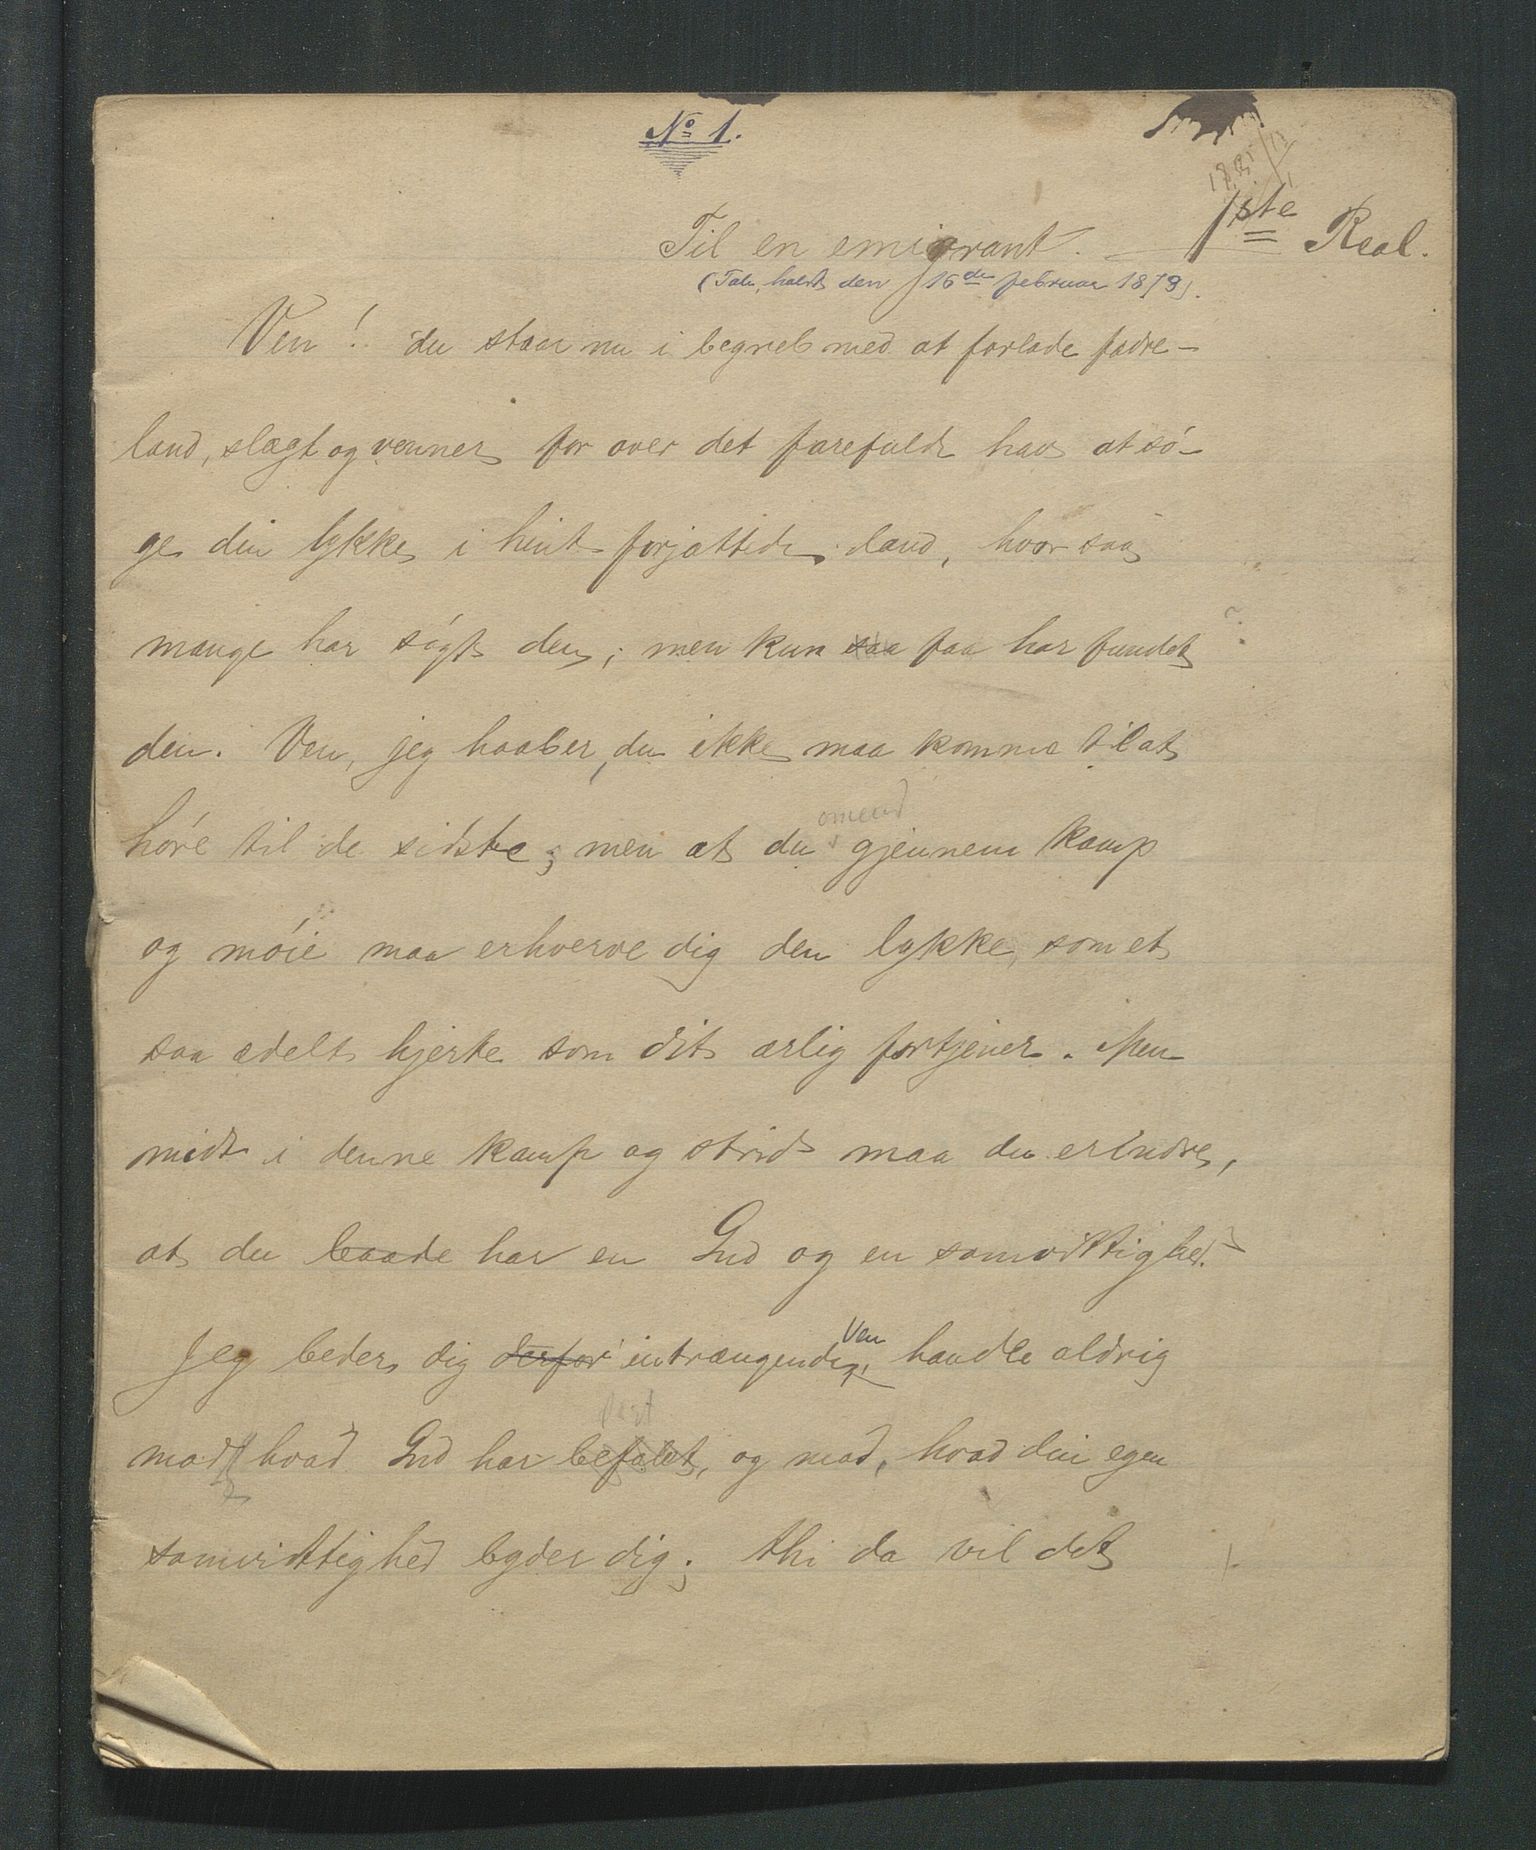 No 1.
Til en emigrant. 1ste Real.
(Tale, holdt den 16de februar 1879).
Ven! du staar nu i begreb med at forlade fædre-
land, slægt og venner for over det farefulde hav at sø-
ge din lykke i hint forjættede land, hvor saa
mange har søgt den; men kun saa faa har fundet
den. Ven, jeg haaber, du ikke maa komme til at
omend
høre til de sidste; men at du gjennem kamp
og møie maa erhverve dig den lykke, som et
saa ædelt hjerte som dit ærlig fortjener. Men
midt i denne kamp og strid maa du erindre,
at du baade har en Gud og en samvittighed.
Ven
Jeg beder dig derfor intrængendig, handle aldrig
mod hvad Gud har befalet, og mod, hvad din egen
samvittighed byder dig; thi da vil det